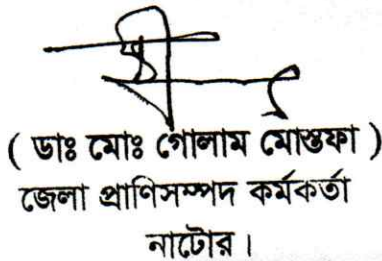 ( ডাঃ মোঃ গোলাম মোস্তফা )
জেলা প্রাণিসম্পদ কর্মকর্তা
নাটোর।